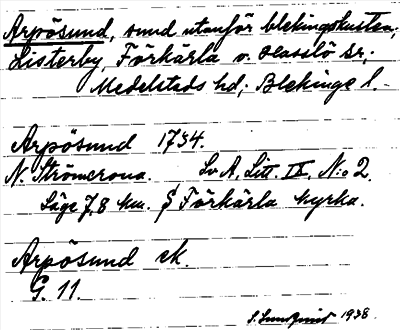 Arpösund, sund utanför blekingskusten,
Listerby, Förkärla o. Hasslö sr;
Medelstads hd; Blekinge l.
Arpösund 1734.
N. Strömcrona. Lv A. Litt. IX. N:o 2.
Läge 7,8 km. S Förkärla kyrka.
Arpösund ek.
G. 11.
S. Lundquist 1938.